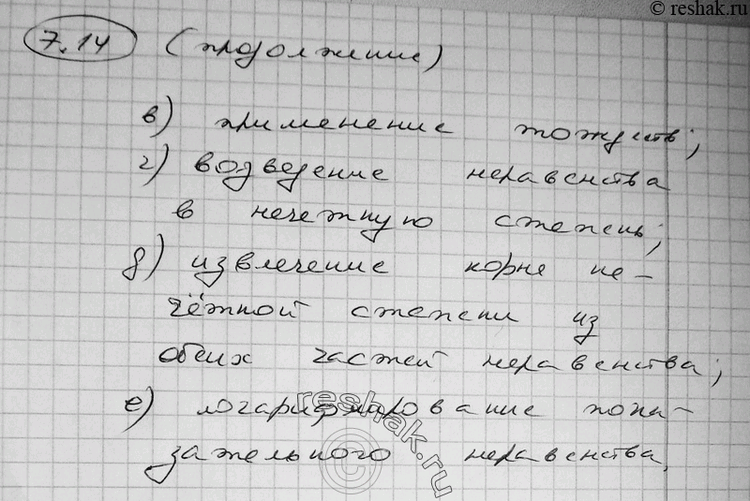 © reshak.ru
7.14 (продолжение)
в) применение тождеств;
г) водведение неравенства
в нечетную степень;
д) извлечение корне не-
чётной степени из
обеих частей неравенства;
е) логарифмирование пока-
зательного неравенства,
reshak.ru
©